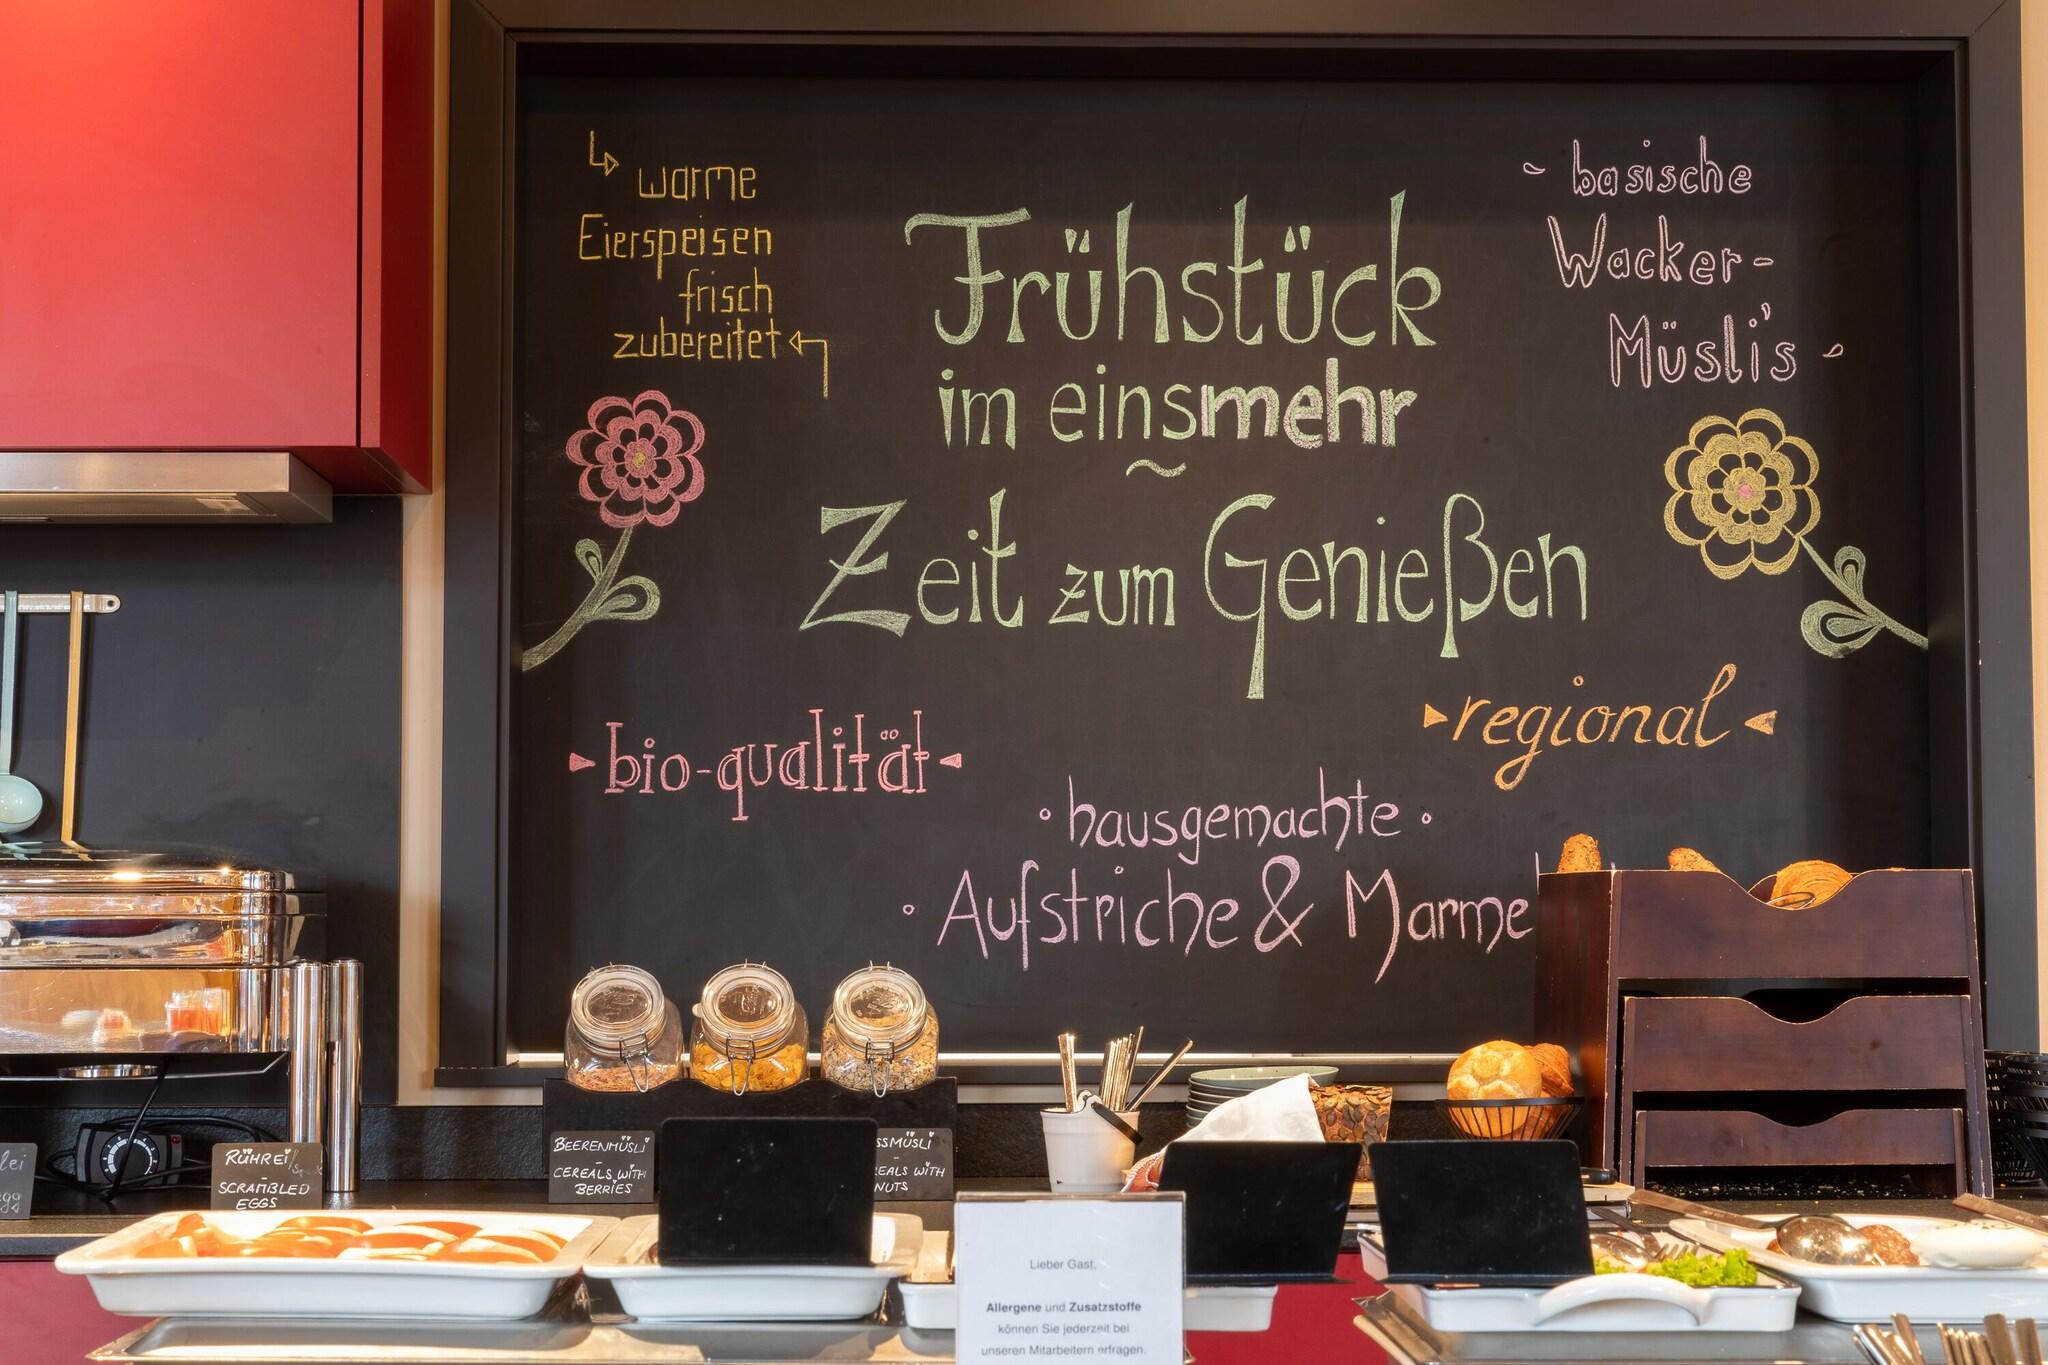 warme
Eierspeisen
frisch
zubereitet
Frühstück
im einsmehr
~
Zeit zum Genießen
- basische
Wacker-
Müsli's -
bio-qualität
regional
hausgemachte
Aufstriche & Marme
RÜHREI
-
SCRAMBLED
EGGS
BEERENMÜSLI
-
CEREALS WITH
BERRIES
SSMÜSLI
-
EALS WITH
NUTS
Lieber Gast,
Allergene und Zusatzstoffe
können Sie jederzeit bei
unseren Mitarbeitern erfragen.